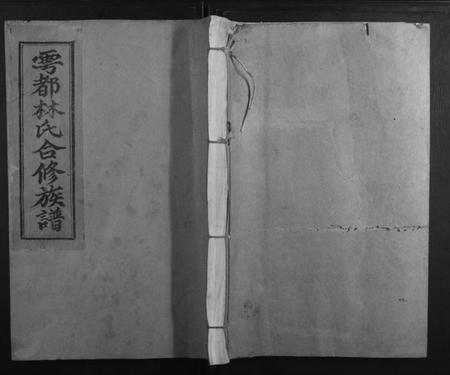 雩都林氏合修族譜